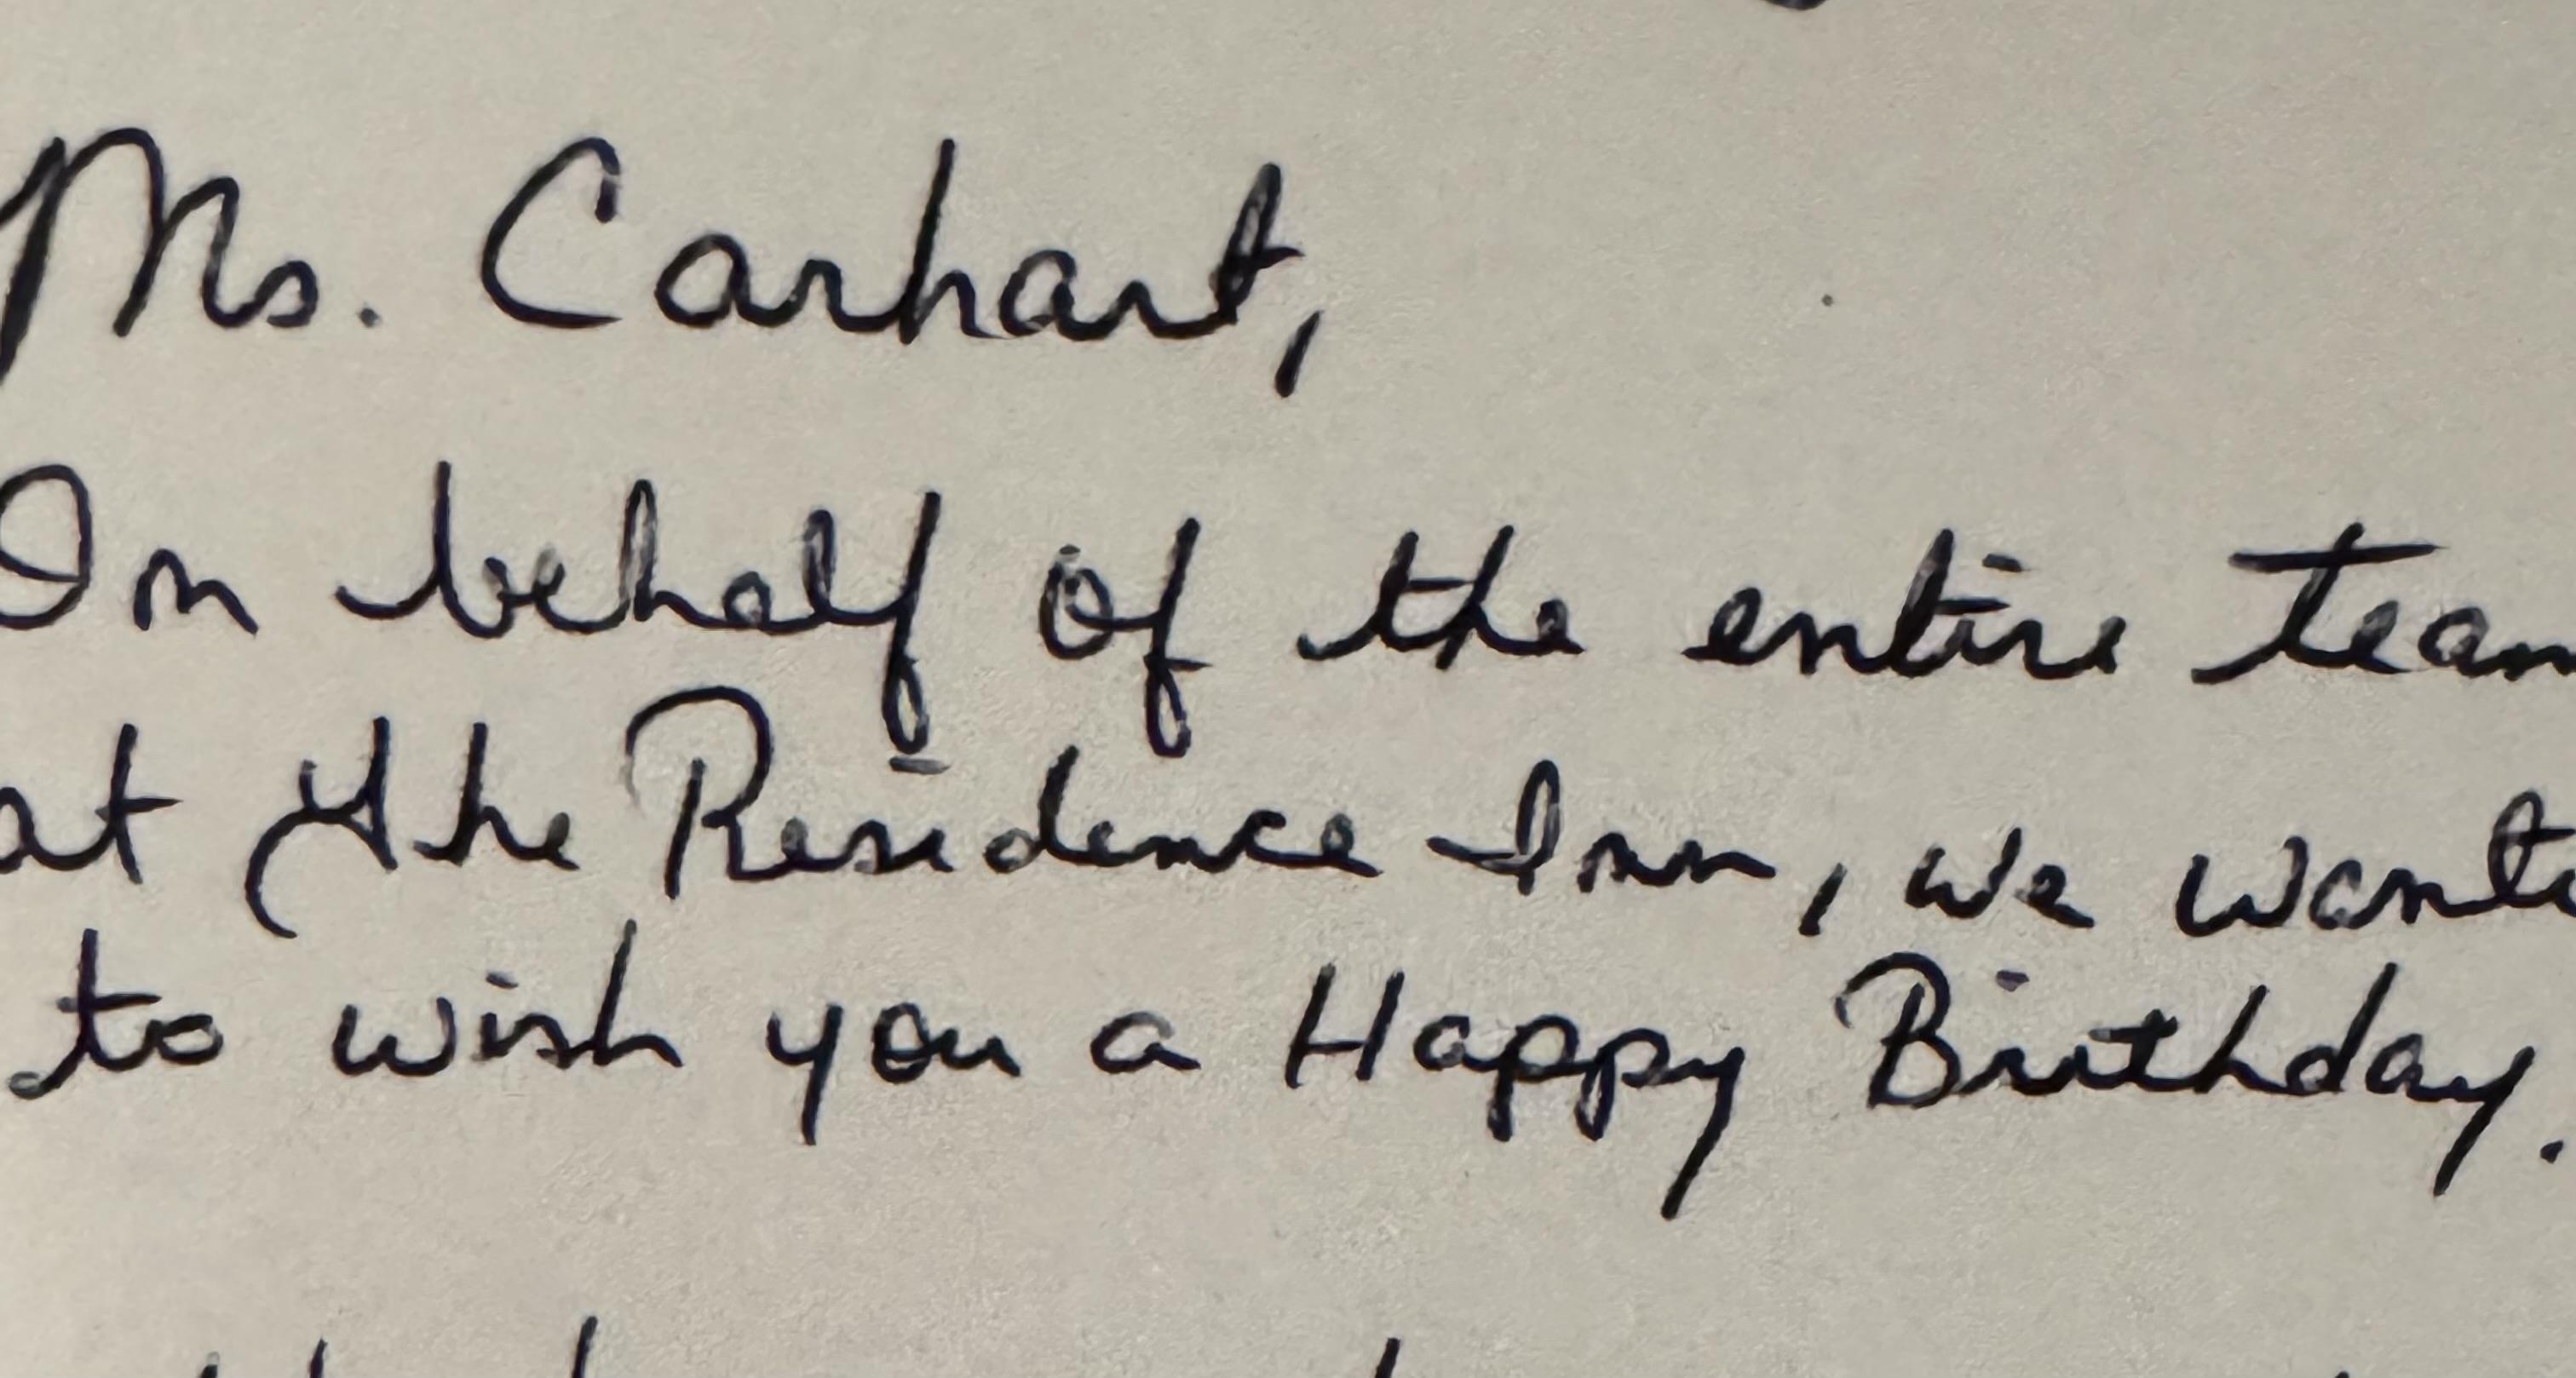 Ms. Carhart,
On behalf of the entire team
at the Residence Inn, we wante
to wish you a Happy Birthday.